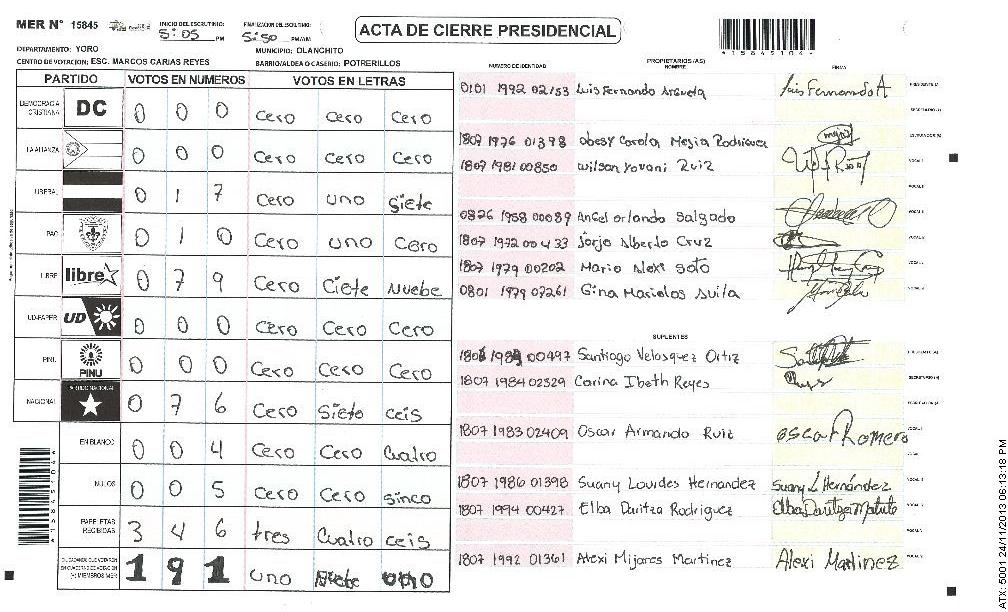 MER N° 15845 INICIO DEL ESCRUTINIO: 5:05 PM FINALIZACION DEL ESCRUTINIO: 5:50 PM/AM ACTA DE CIERRE PRESIDENCIAL
DEPARTAMENTO: YORO MUNICIPIO: OLANCHITO
CENTRO DE VOTACION: ESC. MARCOS CARIAS REYES BARRIO/ALDEA O CASERIO: POTRERILLOS
PARTIDO VOTOS EN NUMEROS VOTOS EN LETRAS
DEMOCRACIA CRISTIANA DC 0 0 0 Cero Cero Cero
LA ALIANZA 0 0 0 Cero Cero Cero
LIBERAL 0 1 7 Cero uno Siete
PAC 0 1 0 Cero uno Cero
LIBRE libre 0 7 9 Cero Ciete Nuebe
UD-FAPER UD 0 0 0 Cero Cero Cero
PINU PINU 0 0 0 Cero Cero Cero
NACIONAL PARTIDO NACIONAL 0 7 6 Cero Siete ceis
EN BLANCO 0 0 4 Cero Cero Cuatro
NULOS 0 0 5 Cero Cero sinco
PAPELETAS RECIBIDAS 3 4 6 tres Cuatro ceis
1 9 1 uno
NUMERO DE IDENTIDAD PROPIETARIOS (AS) NOMBRE FIRMA
0101 1992 02153 Luis Fernando Argueta Luis Fernando A
1807 1976 01398 Obesy Carola Mejia Rodriguez
1807 1981 00850 Wilson Yovani Ruiz
0826 1958 00089 Angel Orlando Salgado
1807 1972 00433 Jorje Alberto Cruz
1807 1979 00202 Mario Alexi Soto
0801 1979 07261 Gina Marielos Avila
SUPLENTES
00497 Santiago Velasquez Ortiz
1807 1984 02529 Carina Ibeth Reyes
1807 1983 02409 Oscar Armando Ruiz oscar Romero
1807 1986 01398 Suany Lourdes Hernandez Suany L Hernández
1807 1994 00427 Elba Daritza Rodriguez Elba Daritza Matute
1807 1992 01361 Alexi Mijares Martinez Alexi Martinez
ATX: 5001 24/11/2013 06:13:18 PM